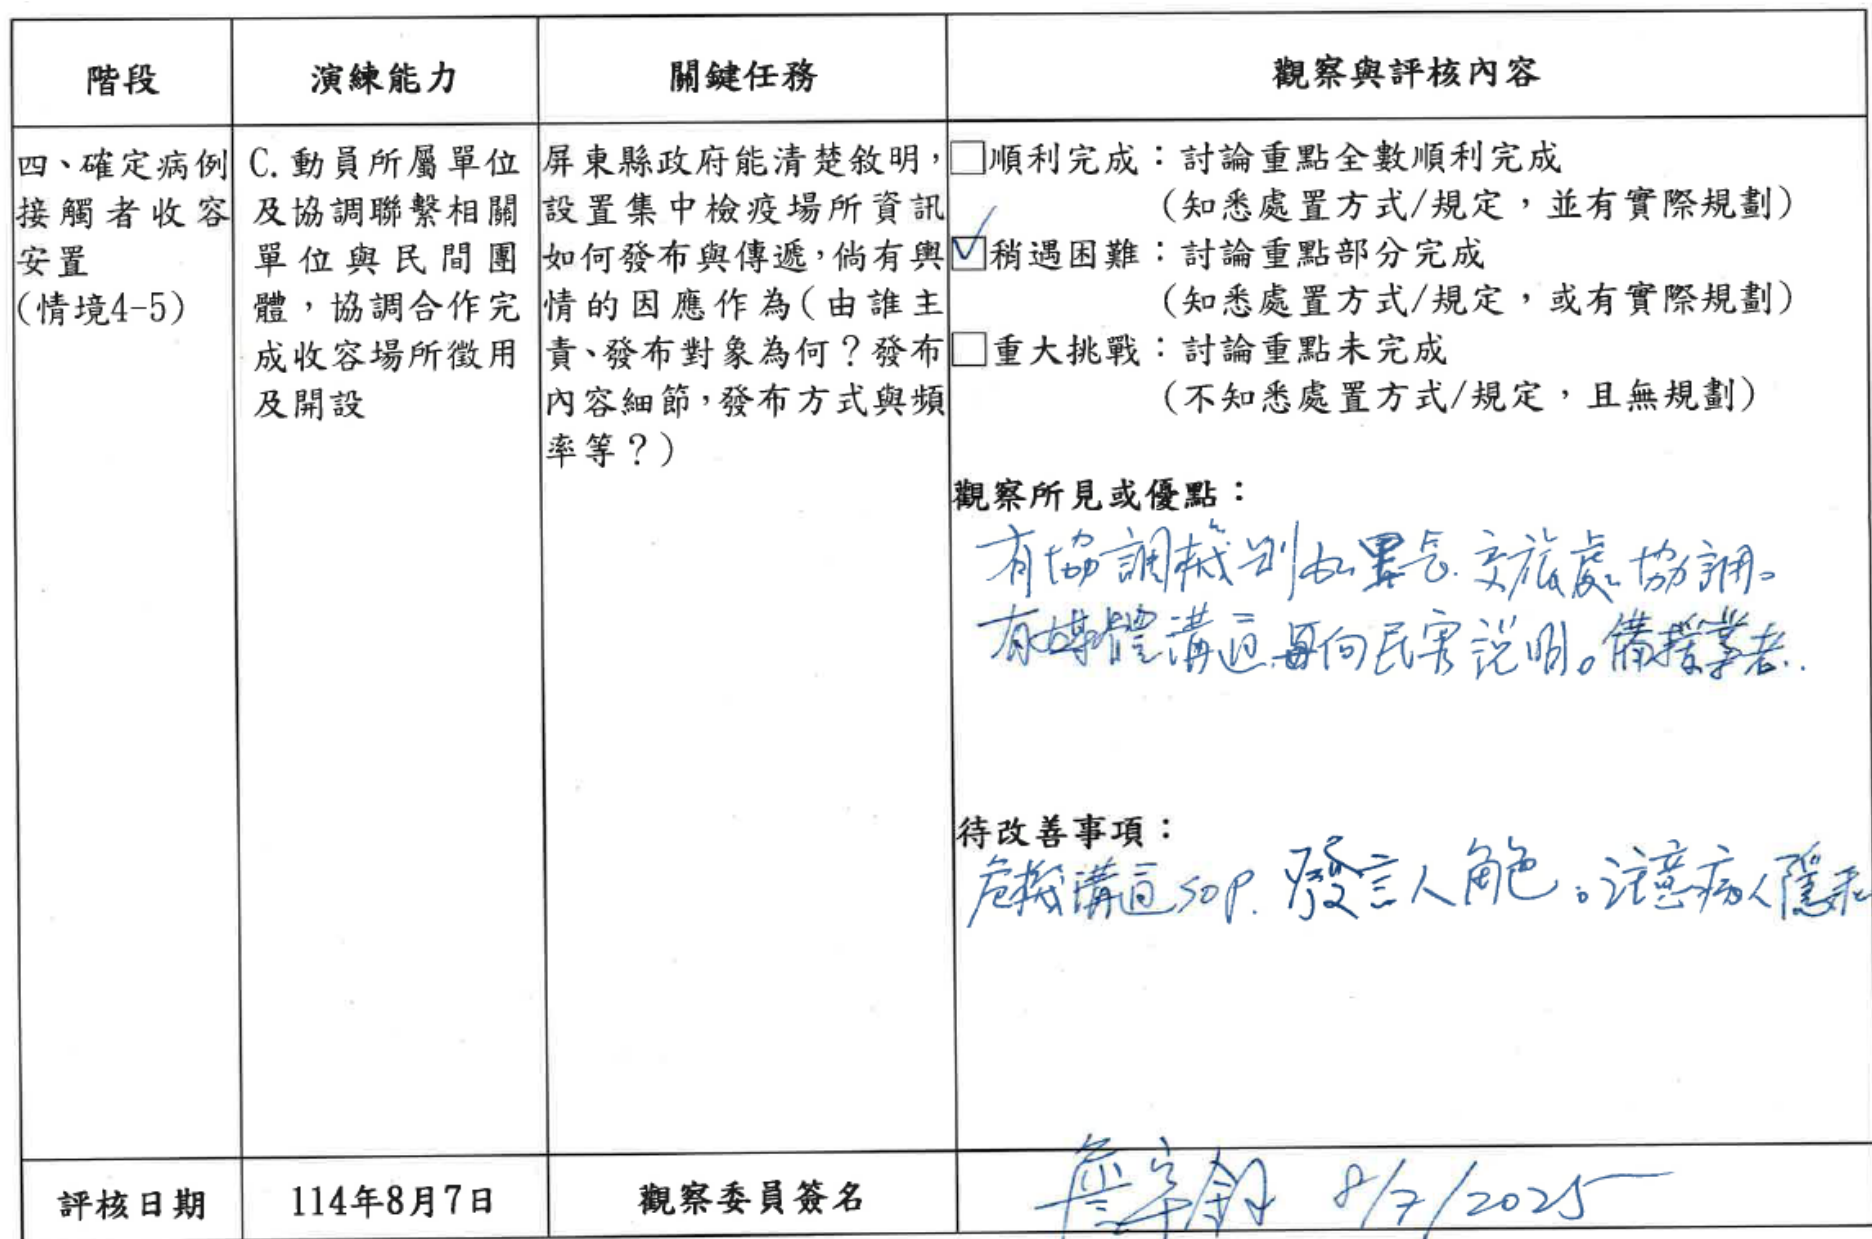 階段 演練能力 關鍵任務 觀察與評核內容
四、確定病例
接觸者收容
安置
(情境4-5)
C.動員所屬單位
及協調聯繫相關
單位與民間團
體，協調合作完
成收容場所徵用
及開設
屏東縣政府能清楚敘明，
設置集中檢疫場所資訊
如何發布與傳遞，倘有輿
情的因應作為(由誰主
責、發布對象為何？發布
內容細節，發布方式與頻
率等？)
□順利完成：討論重點全數順利完成
(知悉處置方式/規定，並有實際規劃)
☑稍遇困難：討論重點部分完成
(知悉處置方式/規定，或有實際規劃)
□重大挑戰：討論重點未完成
(不知悉處置方式/規定，且無規劃)
觀察所見或優點：
有協調機制 交旅處協調。
有媒體溝通 向民眾說明。備援業者.
待改善事項：
危機溝通SOP. 發言人角色。注意病人隱私
評核日期 114年8月7日 觀察委員簽名 8/7/2025